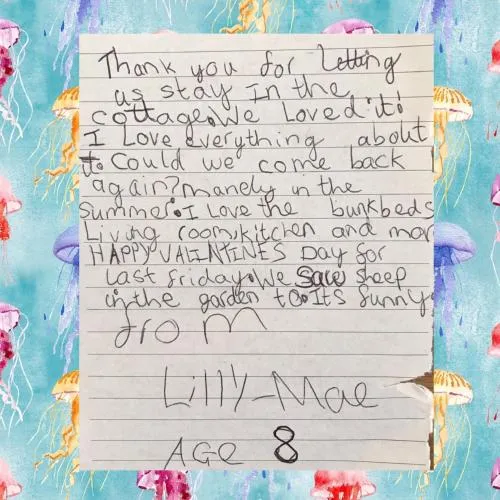 Thank you for Letting
us stay in the
cottage. We Loved it!
I Love everything about
it. Could we come back
again? manely in the
Summer. I Love the bunkbeds
Living room, kitchen and mor
HAPPY VALINTINES Day for
Last friday. We saw sheep
in the garden to. Its funny.
from
Lilly-Mae
AGe 8